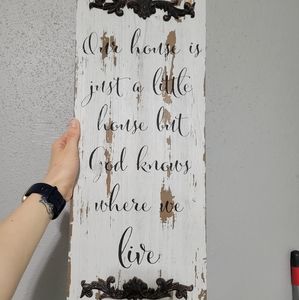 Our house is
just a little
house but
God knows
where we
live